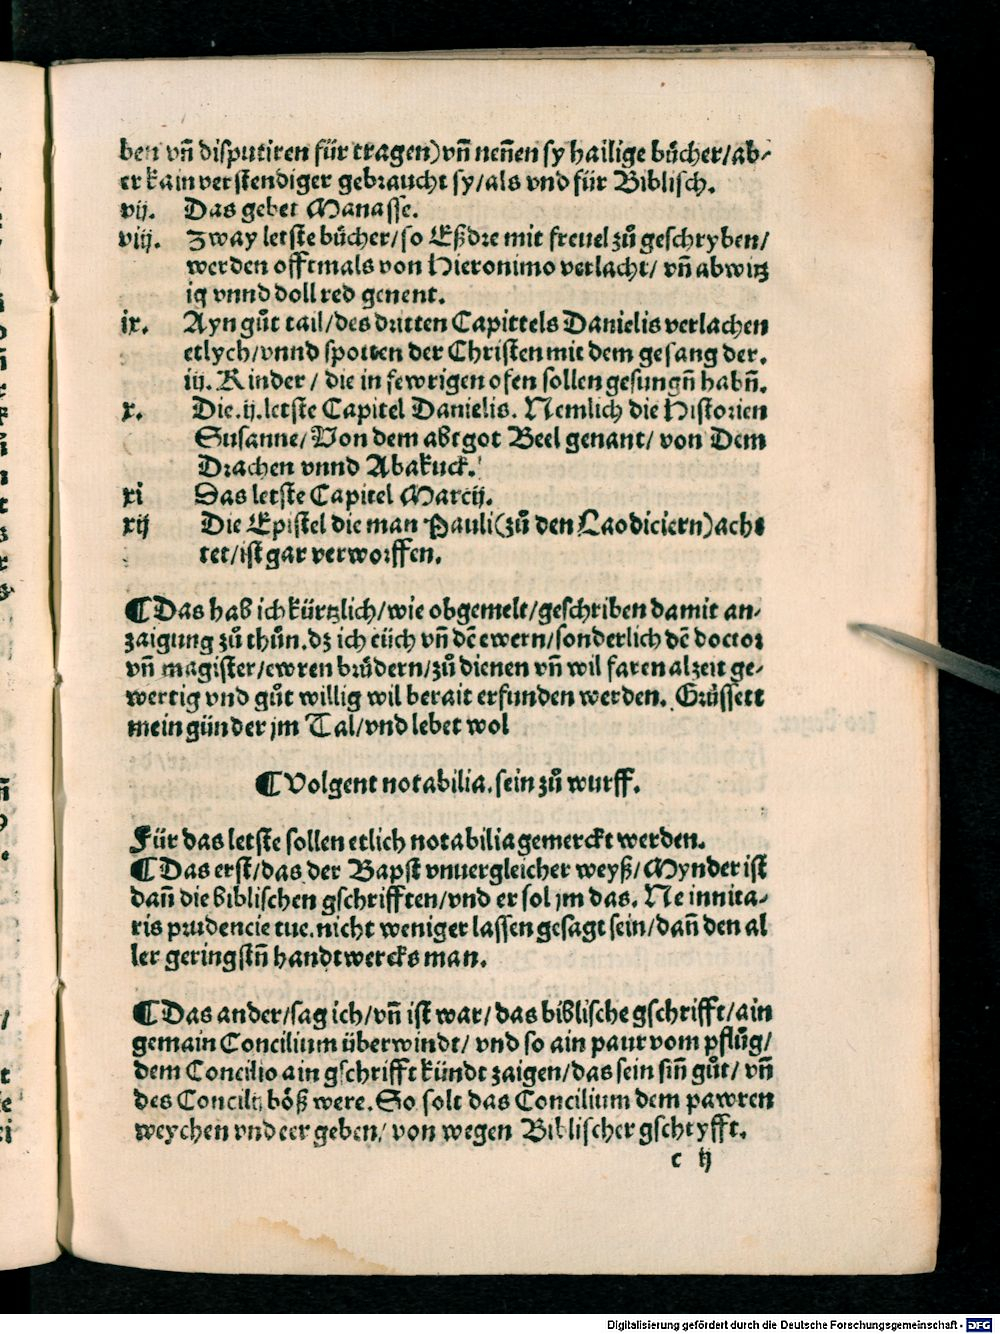 ben vñ disputiren für tragen) vñ neñen sy hailige bůcher/ab-
er kain verstendiger gebraucht sy/als vnd für Biblisch.
vij. Das gebet Manasse.
viij. Zway letste bůcher/so Eßdre mit freuel zů geschryben/
werden offtmals von Hieronimo verlacht/ vñ abwitz
ig vnnd doll red genent.
ix. Ayn gůt tail/des dritten Capittels Danielis verlachen
etlych/vnnd spotten der Christen mit dem gesang der.
iij. Kinder/ die in fewrigen ofen sollen gesungñ habñ.
x. Die.ij.letste Capitel Danielis. Nemlich die Historien
Susanne/Von dem abtgot Beel genant/ von Dem
Drachen vnnd Abakuck.
xi Das letste Capitel Marcij.
xij Die Epistel die man Pauli(zů den Laodiciern)ach
tet/ist gar verworffen.
¶Das hab ich kürtzlich/wie obgemelt/geschriben damit an-
zaigung zů thůn.dz ich eüch vñ dẽ ewern/sonderlich dẽ doctor
vñ magister/ewren brůdern/zů dienen vñ wil faren alzeit ge-
wertig vnd gůt willig wil berait erfunden werden. Grüssett
mein günder jm Tal/vnd lebet wol
¶Volgent notabilia.sein zů wurff.
Für das letste sollen etlich notabilia gemerckt werden.
¶Das erst/das der Bapst vnuergleicher weyß/Mynder ist
dañ die biblischen gschrifften/vnd er sol jm das. Ne innita-
ris prudencie tue.nicht weniger lassen gesagt sein/dañ den al
ler geringstñ handtwercks man.
¶Das ander/sag ich/vñ ist war/das biblische gschrifft/ain
gemain Concilium überwindt/ vnd so ain paur vom pflůg/
dem Concilio ain gschrifft kündt zaigen/das sein siñ gůt/ vñ
des Concilij böß were.So solt das Concilium dem pawren
weychen vnd eer geben/ von wegen Biblischer gschryfft.
c ij
Digitalisierung gefördert durch die Deutsche Forschungsgemeinschaft - DFG